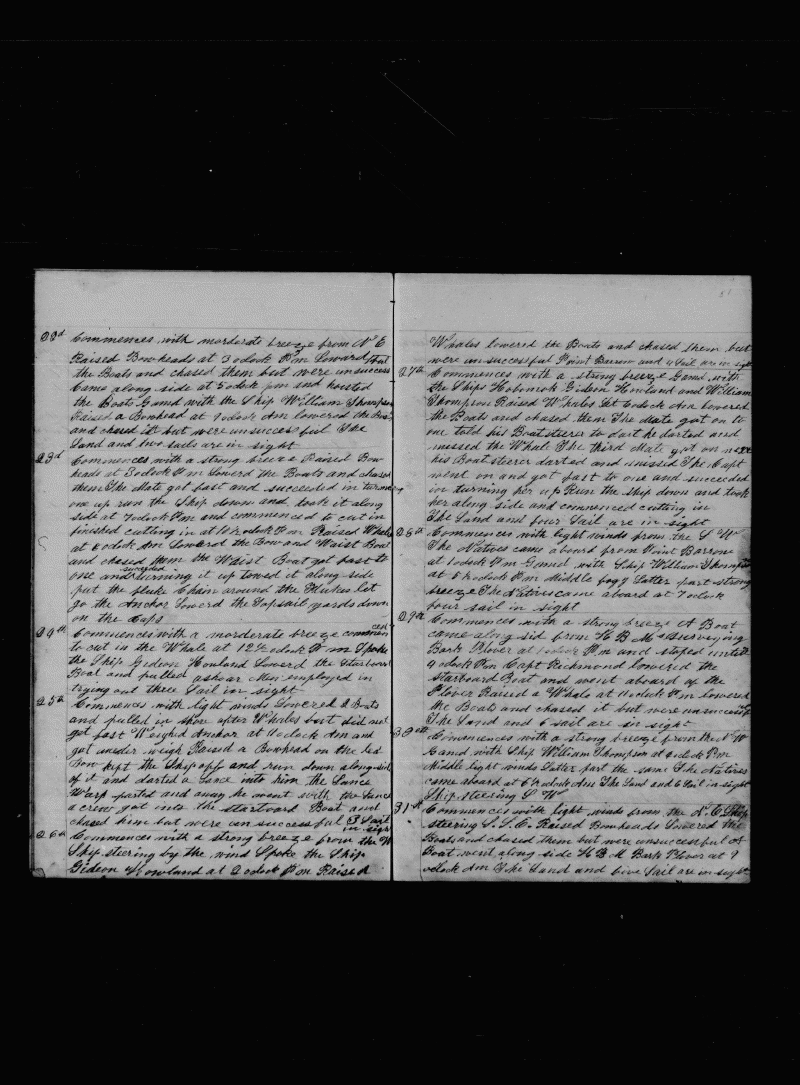 23d Commences with morderate breeze from N E
Raised Bowheads at 3 oclock Pm Lowerd
the Boats and chased them but were unsuccess
Came along side at 5 oclock pm and hoisted
the Boats Gamd with the Ship William Thompson
Raised a Bowhead at 7 oclock Am lowered the Boats
and chased it but were unsuccesful The
Land and two sails are in sight
23d Commences with a strong breeze Raised Bow
heads at 3 oclock Pm Lowerd the Boats and chased
them The Mate got fast and succeeded in turning
one up run the Ship down and took it along
side at 7 oclock Pm and commenced to cut in
finished cutting in at 10½ oclock Pm Raised Whales
at 6 oclock Am Lowered the Bow and Waist Boat
and chased them the Waist Boat got fast to
one and succeded turning it up towed it along side
put the fluke Chain around the Flukes let
go the Anchor Lowerd the Topsail yards down
on the Caps
24th Commences with a morderate breeze commenced
to cut in the Whale at 12½ oclock Pm Spoke
the Ship Gideon Howland Lowerd the Starboard
Boat and pulled ashoar Men employed in
trying out three Sail in sight
25th Commences with light winds Lowered 2 Boats
and pulled in shore after Whales but did not
got fast Weighed Anchor at 11 oclock Am and
got under weigh Raised a Bowhead on the lee
Bow kept the Ship off and run down along side
of it and darted a Lance into him the Lance
Warp parted and away he went with the Lance
a crew got into the starboard Boat and
chased him but were unsuccessful 3 Sail
in sight
26th Commences with a strong breeze from the W
Ship steering by the wind Spoke the Ship
Gideon Howland at 2 oclock Pm Raised
Whales lowered the Boats and chased them but
were unsuccesful Point Barrow and 4 Sail are in sight
27th Commences with a strong breeze Gamd with
the Ships Hobmok Gideon Howland and William
Thompson Raised Whales at 6 oclock Am Lowered
the Boats and chased them The Mate got on to
one told his Boatsteerer to dart he darted and
missed the Whale The third Mate got on next
his Boatsteerer darted and missed The Capt
went in and got fast to one and succeeded
in turning her up Run the ship down and took
her along side and commenced cutting in
The Land and four Sail are in sight
28th Commences with light winds from the S W
The Natives came aboard from Point Barrow
at 1 oclock Pm Gamed with Ship William Thompson
at 5½ oclock Pm Middle fogy Latter part strong
breeze The Natives came aboard at 7 oclock
four sail in sight
29th Commences with a strong breeze A Boat
came along sid from H B M surveying
Bark Plover at 1 oclock Pm and stoped untill
9 oclock Pm Capt Richmond lowered the
starboard Boat and went aboard of the
Plover Raised a Whale at 11 oclock Pm lowered
the Boats and chased it but were unsuccesful
The Land and 6 sail are in sight
30th Commences with a strong breeze from the N W
Gamd with Ship William Thompson at 4 oclock Pm
Middle light winds Latter part the same The Natives
came aboard at 6½ oclock Am The Land and 6 Sail in sight
Ship steering S W
31st Commences with light winds from the N E Ship
steering S.S.E. Raised Bowheads Lowered the
Boats and chased them but were unsuccessful A
Boat went along side H B M Bark Plover at 9
oclock Am The Land and five Sail are in sight